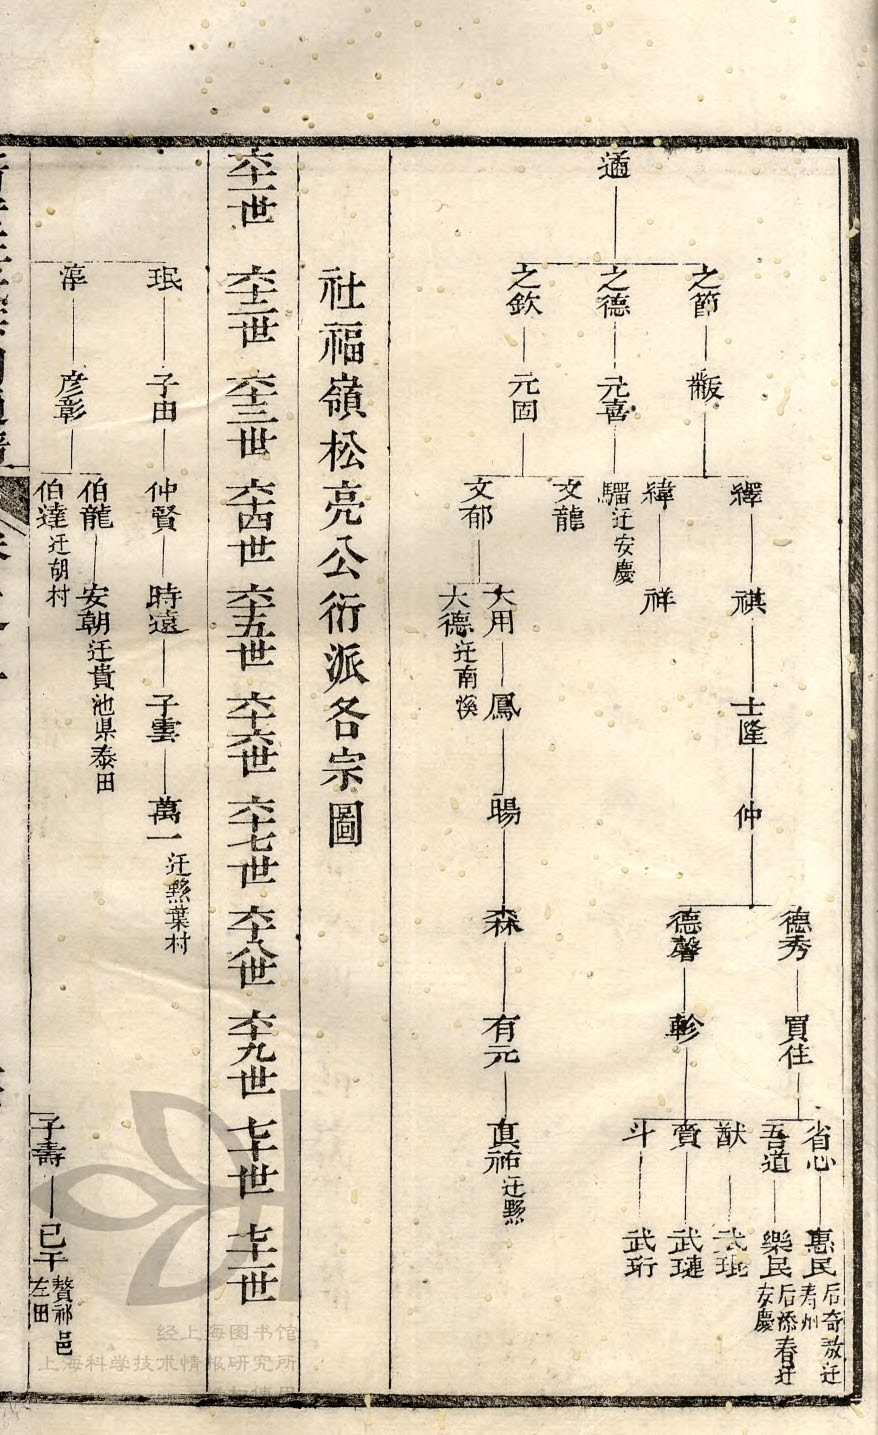 適
之節
之德
之欽
元喜
元固
繹
緯
驑迁安慶
文龍
文郁
祺
祥
大用
大德迁南溪
士隆
鳳
仲
暘
德秀
德馨
森
買住
軫
有元
省心
吾道
猷
賫
斗
真祐迁黟
惠民后奇放迁寿州
樂民后添春迁安慶
武琨
武璉
武珩
社福嶺松亮公衍派各宗圖
六十一世
六十二世
六十三世
六十四世
六十五世
六十六世
六十七世
六十八世
六十九世
七十世
七十一世
珉
子由
仲賢
時遠
子雲
萬一迁黟葉村
淳
彦彰
伯龍
安朝迁貴池県泰田
伯達迁胡村
子壽
已干贅祁邑左田
经上海图书馆
上海科学技术情报研究所